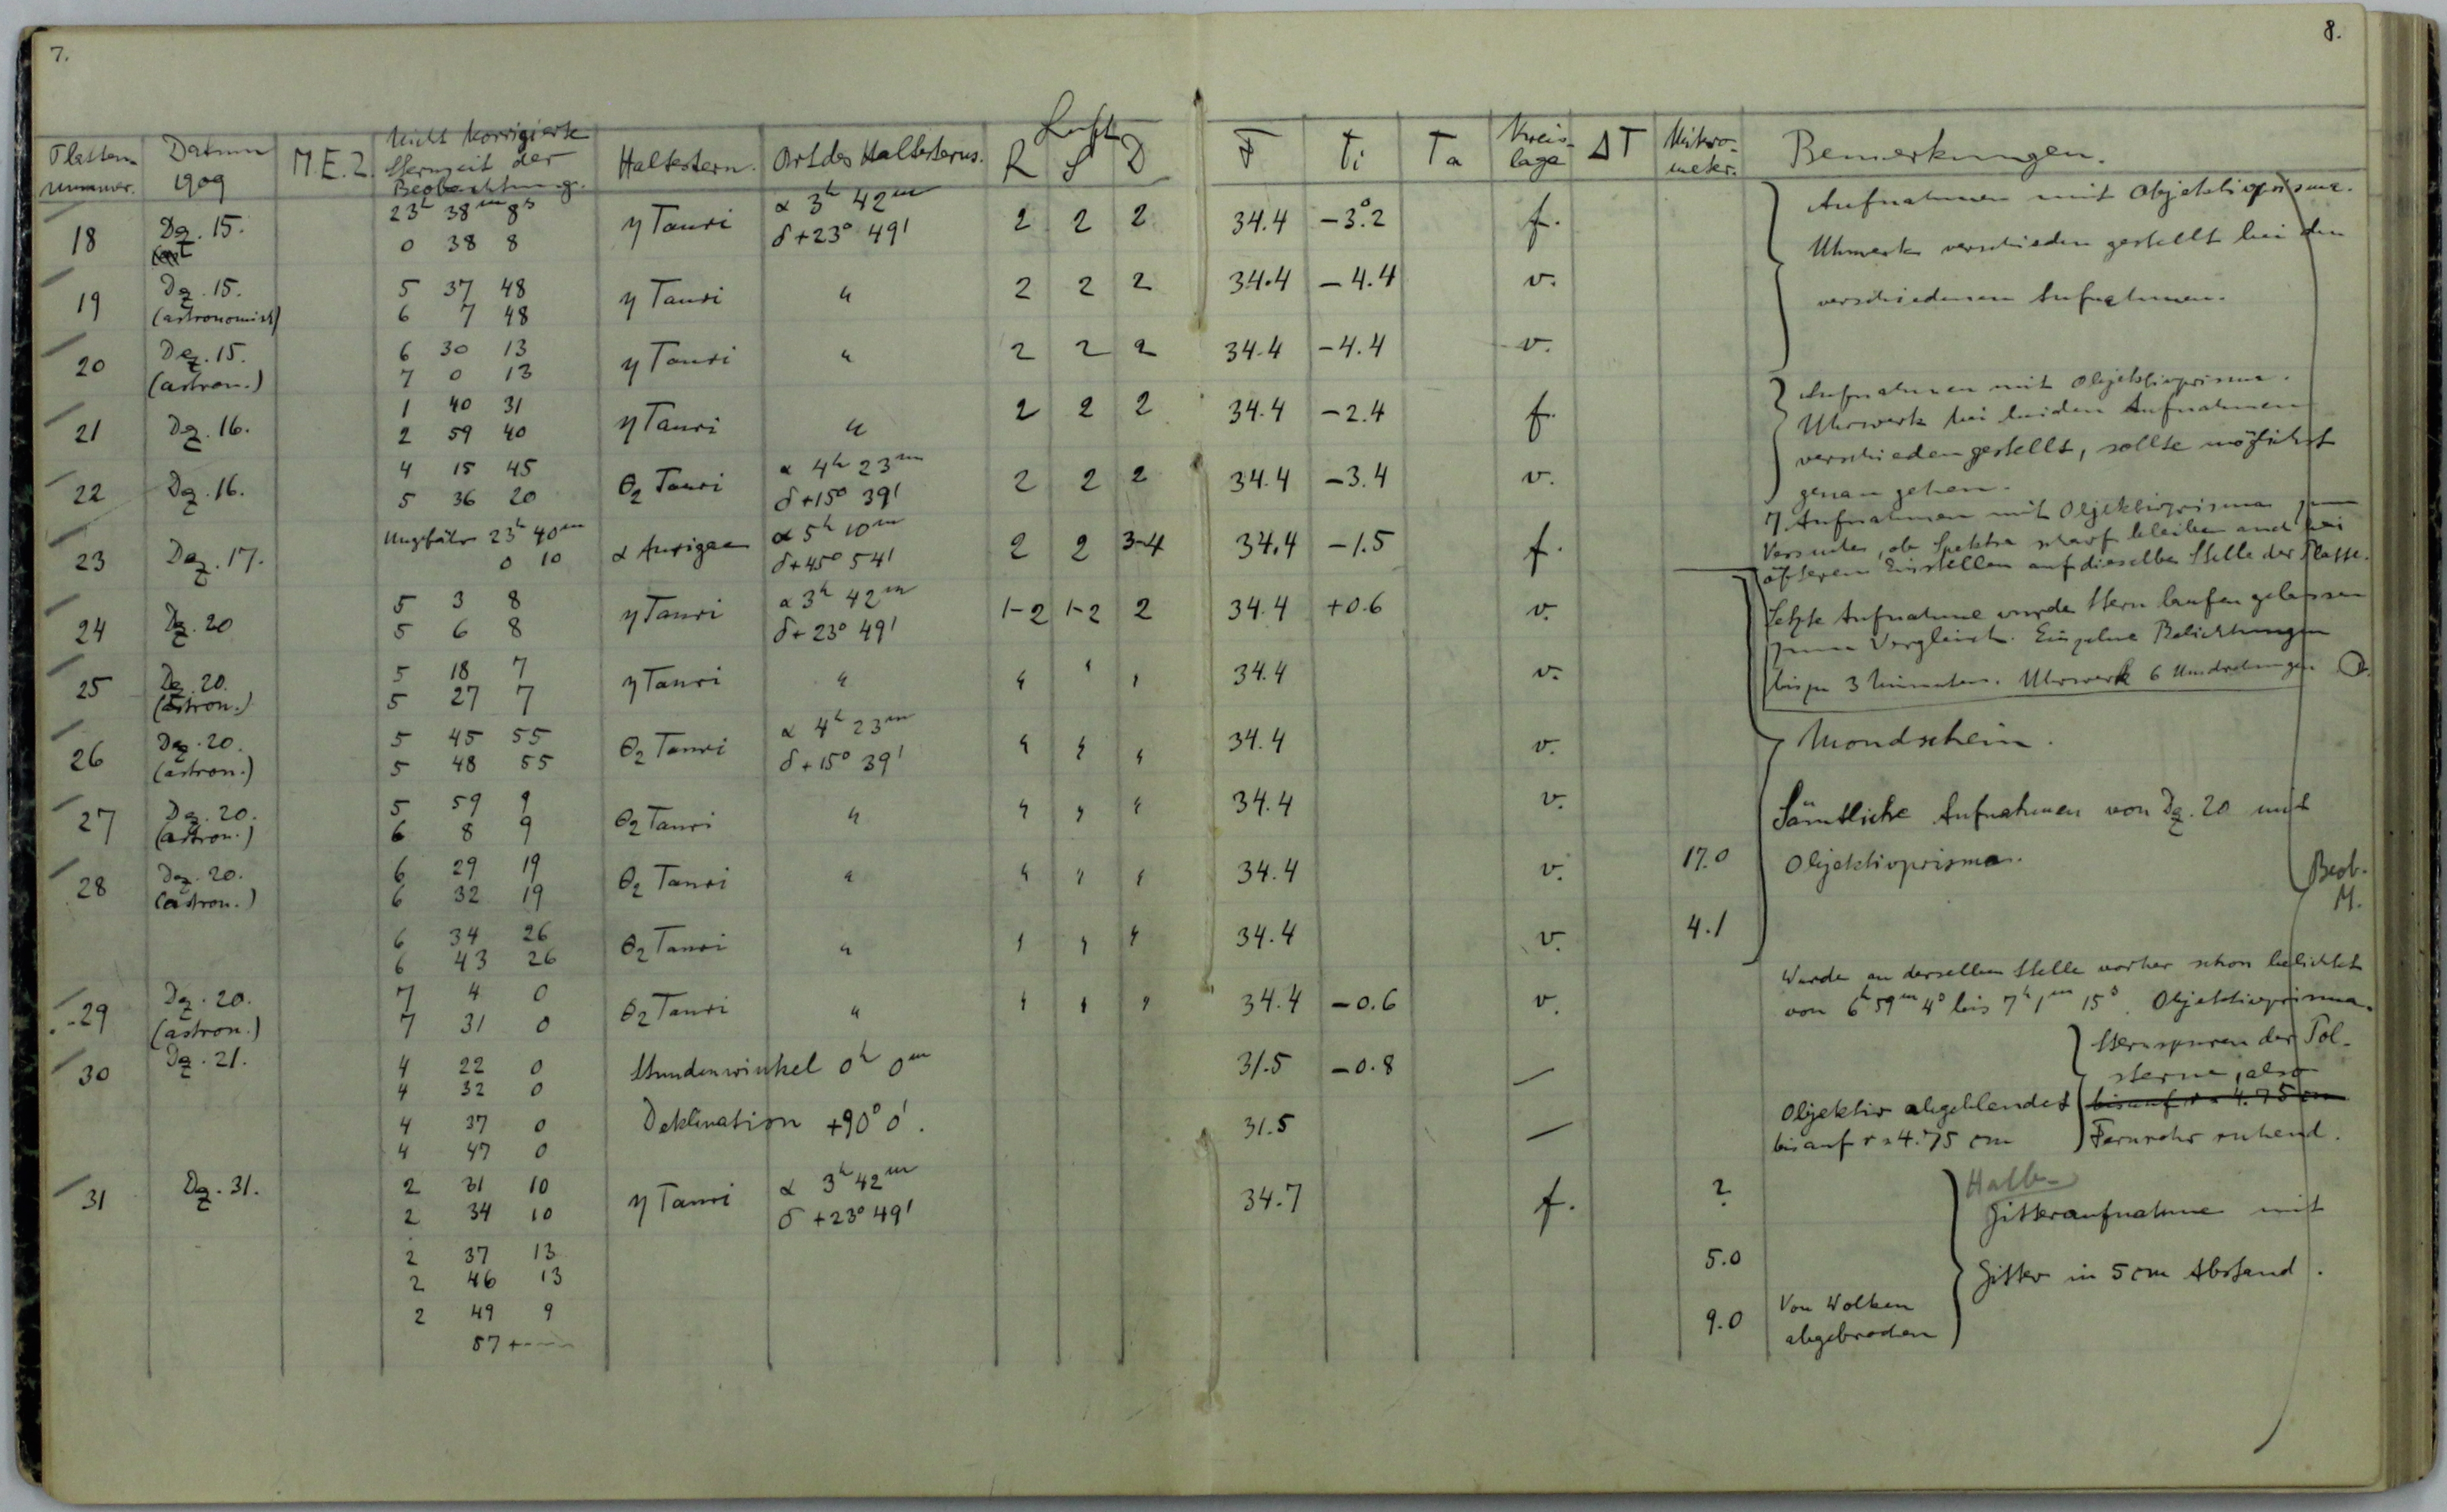 7.
8.
Platten- nummer. Datum 1909 M.E.Z. Nicht korrigierte Sternzeit der Beobachtung. Haltestern. Ort des Haltesterns. Luft R S D F ti Ta Kreis- lage ΔT Mikro- meter. Bemerkungen.
18 Dez. 15. 23h 38m 8s η Tauri α 3h 42m 2 2 2 34.4 -3°.2 f.
0 38 8 δ +23° 49'
Aufnahmen mit Objektivprisma.
Uhrwerk verschieden gestellt bei den
verschiedenen Aufnahmen.
19 Dez. 15. 5 37 48 η Tauri " 2 2 2 34.4 -4.4 v.
(astronomisch) 6 7 48
20 Dez. 15. 6 30 13 η Tauri " 2 2 2 34.4 -4.4 v.
(astron.) 7 0 13
21 Dez. 16. 1 40 31 η Tauri " 2 2 2 34.4 -2.4 f.
2 59 40
Aufnahmen mit Objektivprisma.
Uhrwerk bei beiden Aufnahmen
verschieden gestellt, sollte möglichst
genau gehen.
22 Dez. 16. 4 15 45 θ2 Tauri α 4h 23m 2 2 2 34.4 -3.4 v.
5 36 20 δ +15° 39'
23 Dez. 17. Ungefähr 23h 40m α Aurigae α 5h 10m 2 2 3-4 34.4 -1.5 f.
0 10 δ +45° 54'
7 Aufnahmen mit Objektivprisma zum
Versuche, ob Spektra scharf bleiben auch bei
öfterem Einstellen auf dieselbe Stelle der Platte.
24 Dez. 20 5 3 8 η Tauri α 3h 42m 1-2 1-2 2 34.4 +0.6 v.
5 6 8 δ +23° 49'
Letzte Aufnahme wurde Stern laufen gelassen
zum Vergleich. Einzelne Belichtungen
bis zu 3 Minuten. Uhrwerk 6 Umdrehungen
25 Dez. 20. 5 18 7 η Tauri " " " " 34.4 v.
(astron.) 5 27 7
26 Dez. 20. 5 45 55 θ2 Tauri α 4h 23m " " " 34.4 v.
(astron.) 5 48 55 δ +15° 39'
Mondschein.
27 Dez. 20. 5 59 9 θ2 Tauri " " " " 34.4 v.
(astron.) 6 8 9
Sämtliche Aufnahmen von Dez. 20 mit
Objektivprisma.
28 Dez. 20. 6 29 19 θ2 Tauri " " " " 34.4 v. 17.0
(astron.) 6 32 19
Beob.
M.
6 34 26 θ2 Tauri " " " " 34.4 v. 4.1
6 43 26
29 Dez. 20. 7 4 0 θ2 Tauri " " " " 34.4 -0.6 v.
(astron.) 7 31 0
Wurde an derselben Stelle vorher schon belichtet
von 6h 59m 4s bis 7h 1m 15s. Objektivprisma.
30 Dez. 21. 4 22 0 Stundenwinkel 0h 0m 31.5 -0.8 —
4 32 0
4 37 0 Deklination +90° 0'. 31.5 —
4 47 0
Objektiv abgeblendet
bis auf r = 4.75 cm
Sternspuren der Pol-
sterne, also
bis auf r = 4.75 cm
Fernrohr ruhend.
31 Dez. 31. 2 31 10 η Tauri α 3h 42m 34.7 f. ?
2 34 10 δ +23° 49'
2 37 13 5.0
2 46 13
2 49 9 9.0 Von Wolken
57 abgebrochen
Halb-
Gitteraufnahme mit
Gitter in 5 cm Abstand.